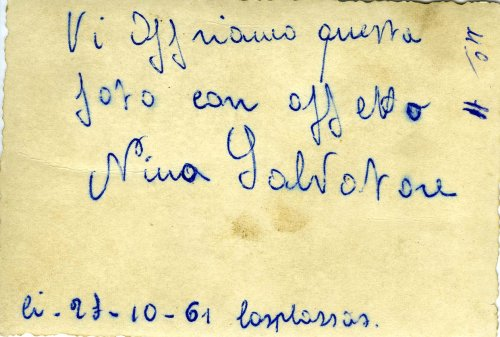 Vi Offriamo questa
foto con affetto
Nina Salvatore
li - 27-10-61 Lasplassas.